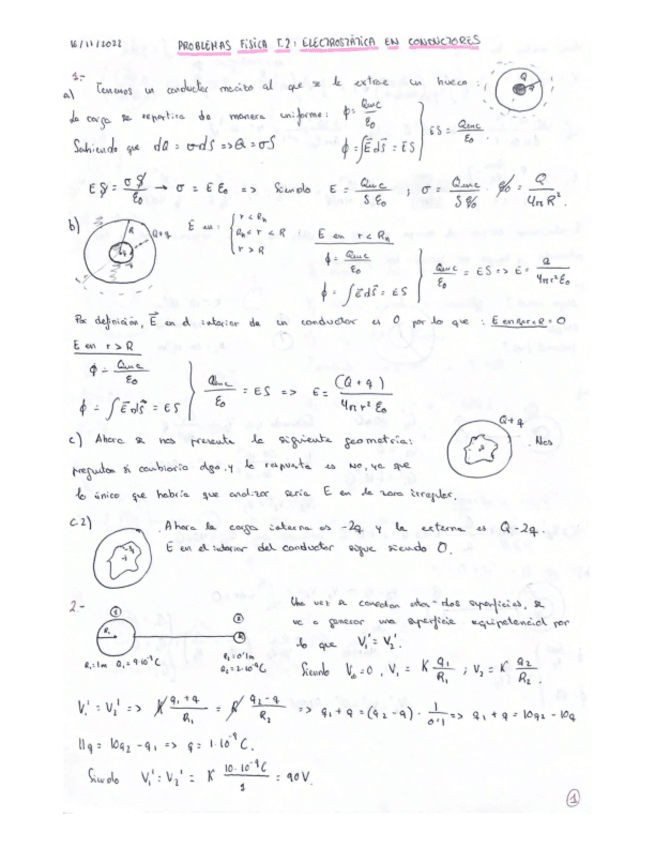 16/11/2022 PROBLEMAS FÍSICA T.2: ELECTROSTÁTICA EN CONDUCTORES
1.-
a) Tenemos un conductor macizo al que se le extrae un hueco:
la carga se repartira de manera uniforme: ϕ = Qenc/ε0
Sabiendo que dQ = σdS => Q = σS ϕ = ∫E dS = ES } ES = Qenc/ε0
E S = σ S/ε0 → σ = E ε0 => Siendo E = Qenc/(S ε0) ; σ = Qenc/(S ε0) · ε0 = Q/(4πR²).
b) R Q+q E en: { r < Rn
Rn < r < R
r > R
E en r < Rn
ϕ = Qenc/ε0
ϕ = ∫E dS = ES } Qenc/ε0 = ES => E = /(4πr²ε0)
Por definición, E en el interior de un conductor es 0 por lo que: E en Rn<r<R = 0
E en r > R
ϕ = Qenc/ε0
ϕ = ∫E dS = ES } Qenc/ε0 = ES => E = (Q + q)/(4πr²ε0)
c) Ahora se nos presenta la siguiente geometría: Q+q . Nos
preguntan si cambiaría algo, y la respuesta es NO, ya que
lo único que habría que analizar sería E en la zona irregular.
c.2) Ahora la carga interna es -2q y la externa es Q-2q.
E en el interior del conductor sigue siendo 0.
2.- Una vez se conectan estas dos superficies, se
va a generar una superficie equipotencial por
lo que V1' = V2'.
1 2
R1
R1 = 1m Q1 = 9·10⁻⁹C R2 = 0'1m
Q2 = 2·10⁻⁹C
Siendo V∞ = 0, V1 = K q1/R1 ; V2 = K q2/R2.
V1' = V2' => K (q1 + q)/R1 = K (q2 - q)/R2 => q1 + q = (q2 - q) · 1/0'1 => q1 + q = 10q2 - 10q
11q = 10q2 - q1 => q = 1·10⁻⁹ C.
Siendo V1' = V2' = K 10·10⁻⁹C/1 = 90V.
1